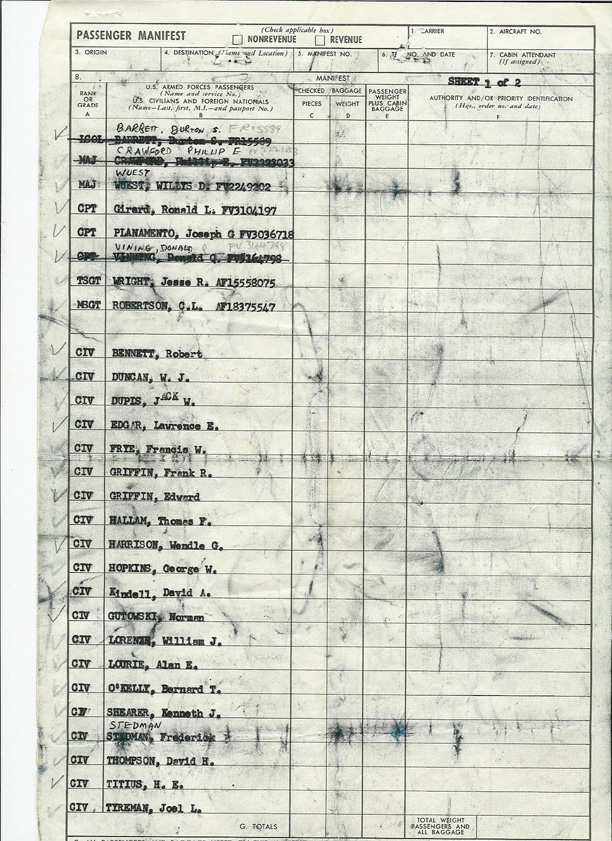 PASSENGER MANIFEST
(Check applicable box)
NONREVENUE REVENUE
1. CARRIER
2. AIRCRAFT NO.
3. ORIGIN
4. DESTINATION (Name and Location)
5. MANIFEST NO.
6. NO. AND DATE
7. CABIN ATTENDANT
(If assigned)
8. MANIFEST
SHEET 1 of 2
RANK OR GRADE
A
U.S. ARMED FORCES PASSENGERS
(Name and service No.)
B
U.S. CIVILIANS AND FOREIGN NATIONALS
(Name—Last, first, M.I.—and passport No.)
CHECKED BAGGAGE
PIECES
C
WEIGHT
D
PASSENGER
WEIGHT
PLUS CABIN
BAGGAGE
E
AUTHORITY AND/OR PRIORITY IDENTIFICATION
(Hqs., order no. and date)
F
BARRETT, BURTON S. FR15589
LCOL BARRETT, Burton S. FR15589
CRAWFORD PHILLIP E
MAJ CRAWFORD, Phillip E. FV2223033
WUEST
MAJ WUEST, WILLYS D. FV2249202
CPT Girard, Ronald L. FV3104197
CPT PLANAMENTO, Joseph G FV3036718
VINING, DONALD Q FV3164798
CPT VINNING, Donald Q. FV3164798
TSGT WRIGHT, Jesse R. AF15558075
MSGT ROBERTSON, C.L. AF18375547
CIV BENNETT, Robert
CIV DUNCAN, W. J.
CIV DUPIS, JACK W.
CIV EDGAR, Lawrence E.
CIV FRYE, Francis W.
CIV GRIFFIN, Frank R.
CIV GRIFFIN, Edward
CIV HALLAM, Thomas F.
CIV HARRISON, Wendle G.
CIV HOPKINS, George W.
CIV Kindell, David A.
CIV GUTOWSKI, Norman
CIV LORENZN, William J.
CIV LOURIE, Alan E.
CIV O'KELLY, Bernard T.
CIV SHEARER, Kenneth J.
STEDMAN
CIV STEDMAN, Frederick
CIV THOMPSON, David H.
CIV TITIUS, H. E.
CIV TYREMAN, Joel L.
G. TOTALS
TOTAL WEIGHT
PASSENGERS AND
ALL BAGGAGE